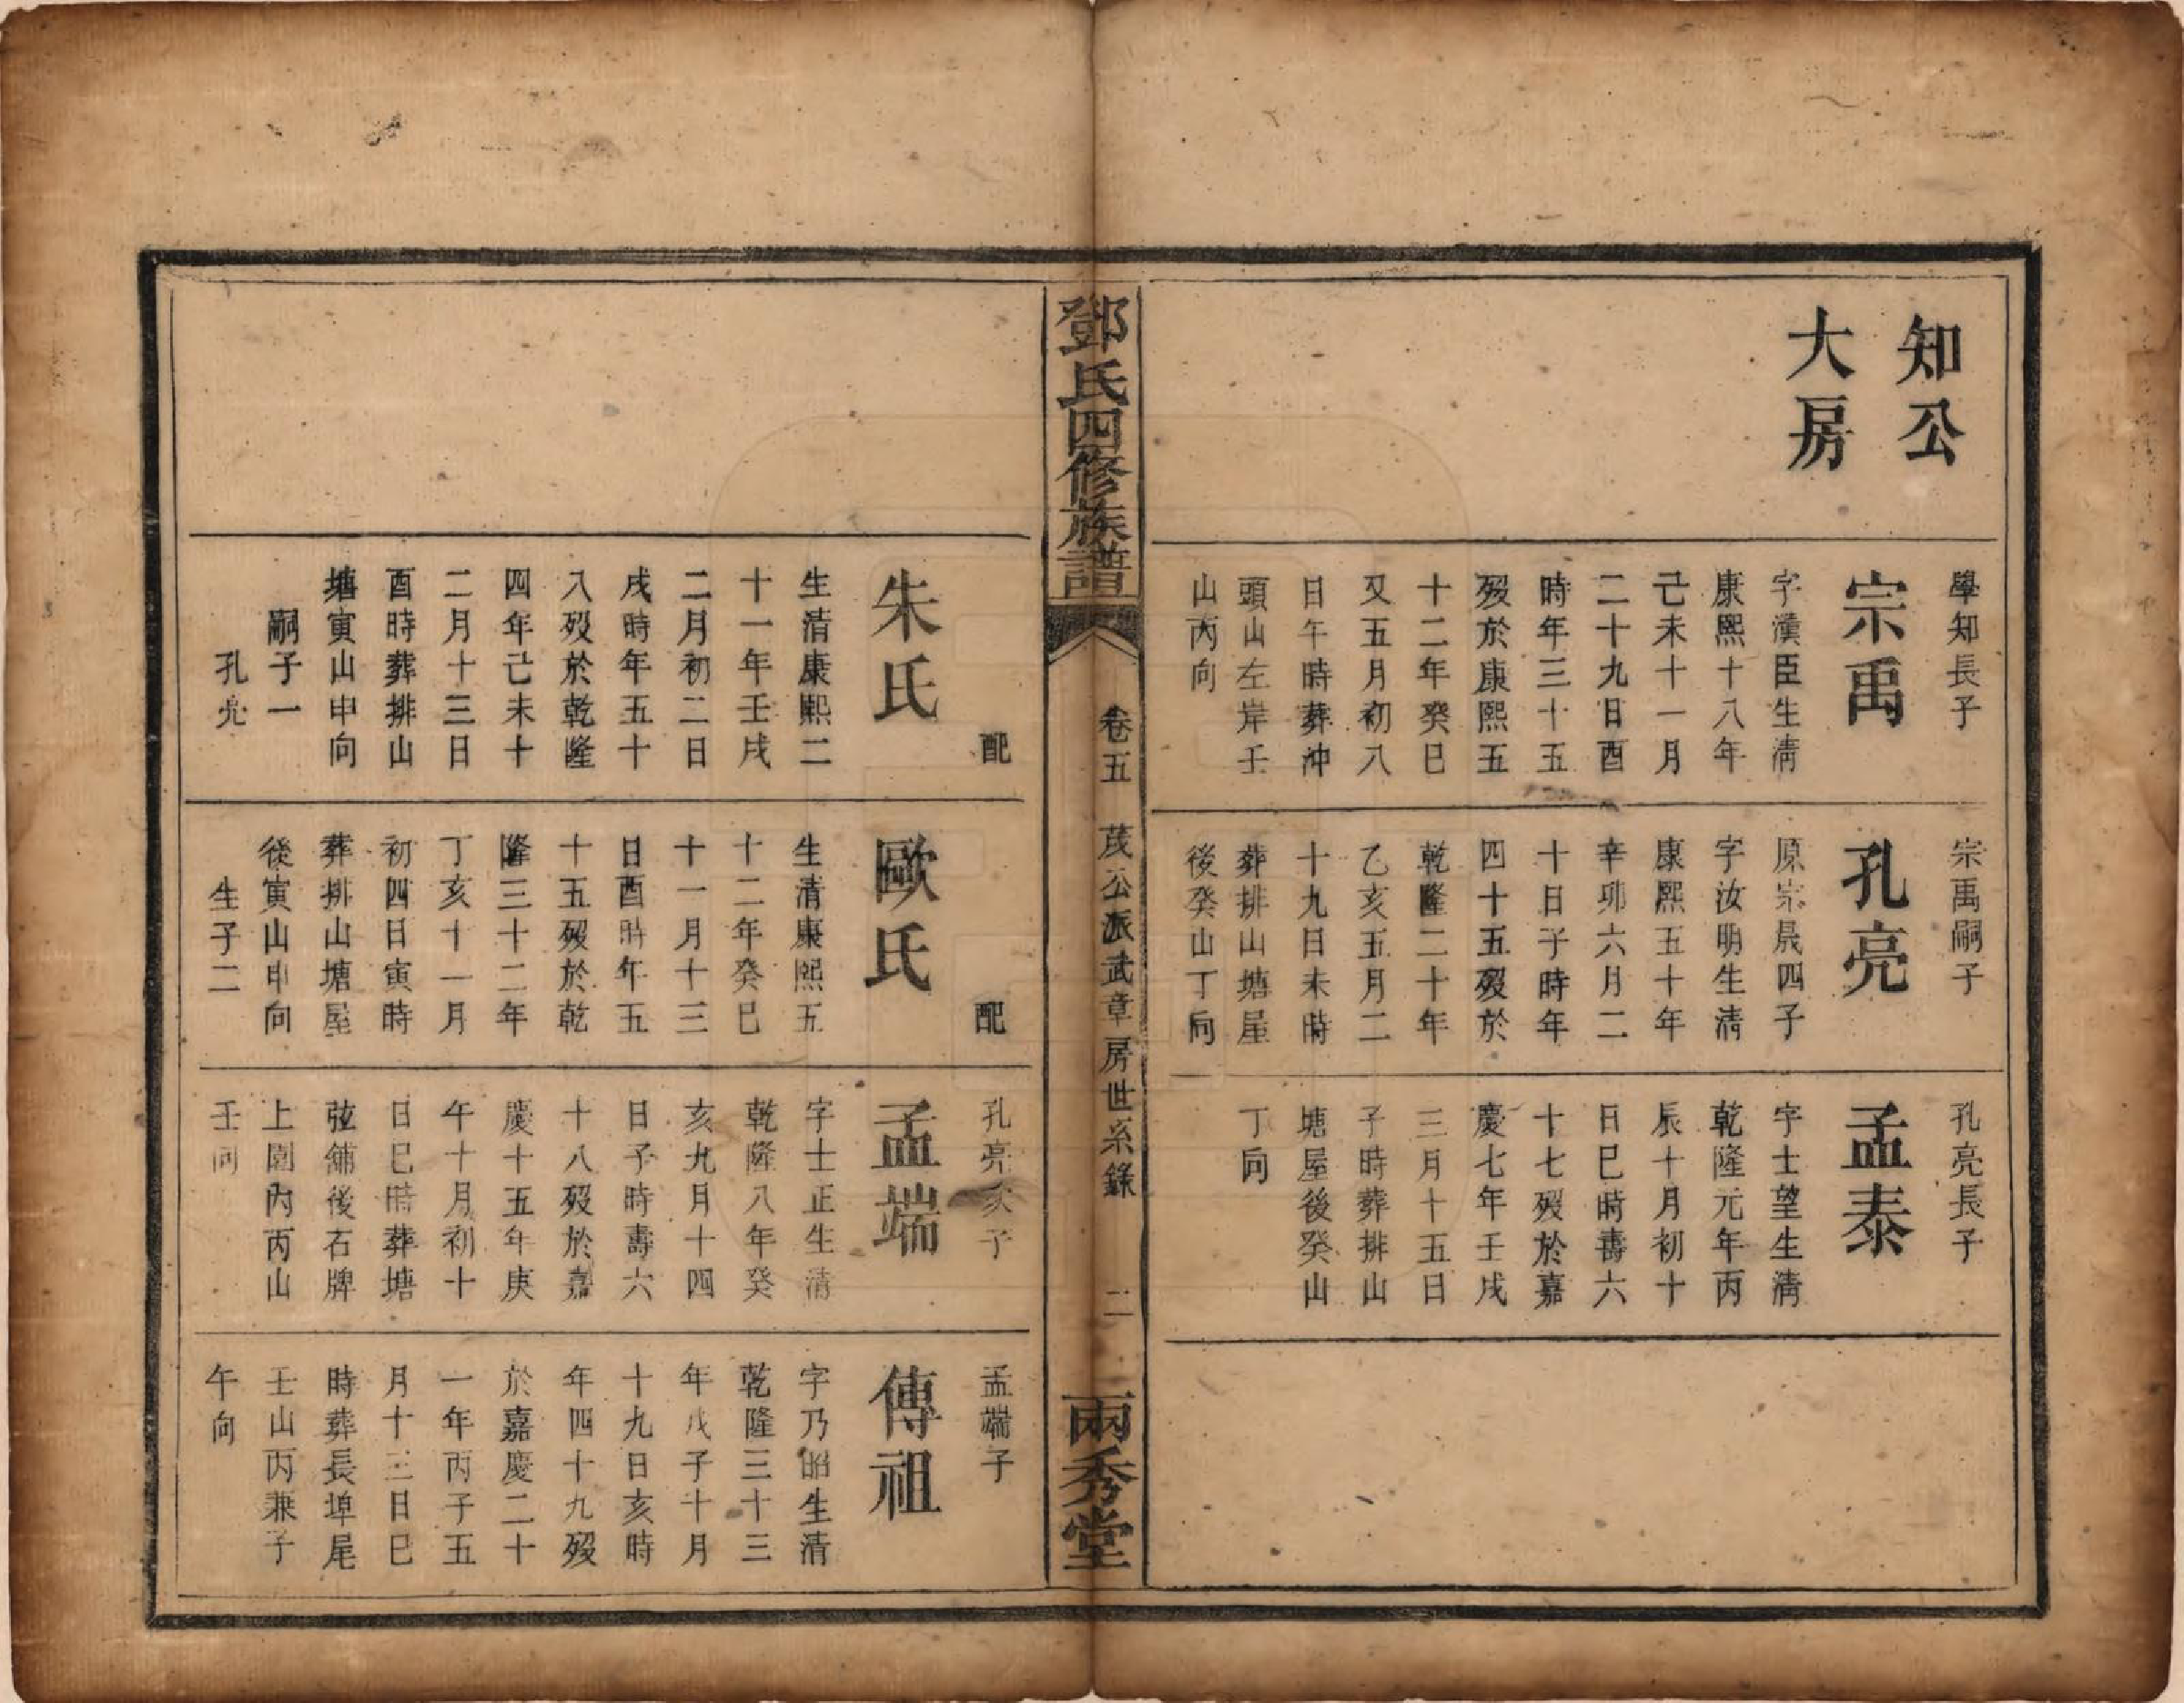 知公
大房
學知長子
宗禹
字漢臣生清
康熙十八年
己未十一月
二十九日酉
時年三十五
歿於康熙五
十二年癸巳
又五月初八
日午時葬沖
頭山左岸壬
山丙向
宗禹嗣子
孔亮
原宗晟四子
字汝明生清
康熙五十年
辛卯六月二
十日子時年
四十五歿於
乾隆二十年
乙亥五月二
十九日未時
葬排山塘屋
後癸山丁向
孔亮長子
孟泰
字士望生清
乾隆元年丙
辰十月初十
日巳時壽六
十七歿於嘉
慶七年壬戌
三月十五日
子時葬排山
塘屋後癸山
丁向
鄧氏四修族譜
卷五 茂公派武章房世系錄 二
兩秀堂
配
朱氏
生清康熙二
十一年壬戌
二月初二日
戌時年五十
八歿於乾隆
四年己未十
二月十三日
酉時葬排山
塘寅山申向
嗣子一
孔亮
配
歐氏
生清康熙五
十二年癸巳
十一月十三
日酉時年五
十五歿於乾
隆三十二年
丁亥十一月
初四日寅時
葬排山塘屋
後寅山申向
生子二
孔亮次子
孟端
字士正生清
乾隆八年癸
亥九月十四
日子時壽六
十八歿於嘉
慶十五年庚
午十月初十
日巳時葬塘
弦舖後石牌
上園內丙山
壬向
孟端子
傳祖
字乃昭生清
乾隆三十三
年戊子十月
十九日亥時
年四十九歿
於嘉慶二十
一年丙子五
月十三日巳
時葬長埠尾
壬山丙兼子
午向